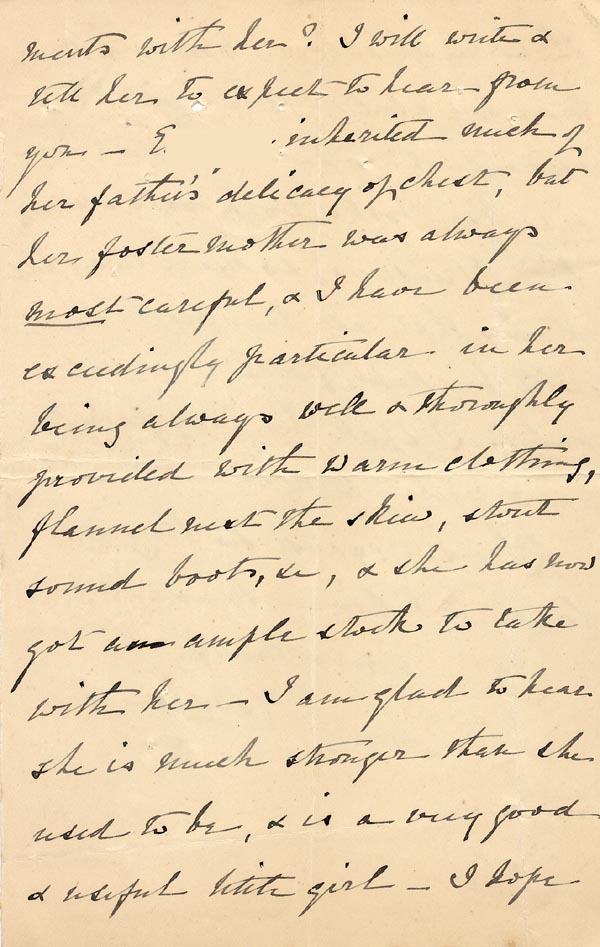 ments with her? I will write &
tell her to expect to hear from
you – E. inherited much of
her father's delicacy of chest, but
her foster mother was always
most careful, & I have been
exceedingly particular in her
being always well & thoroughly
provided with warm clothing,
flannel next the skin, stout
sound boots, &c, & she has now
got an ample stock to take
with her – I am glad to hear
she is much stronger than she
used to be, & is a very good
& useful little girl – I hope